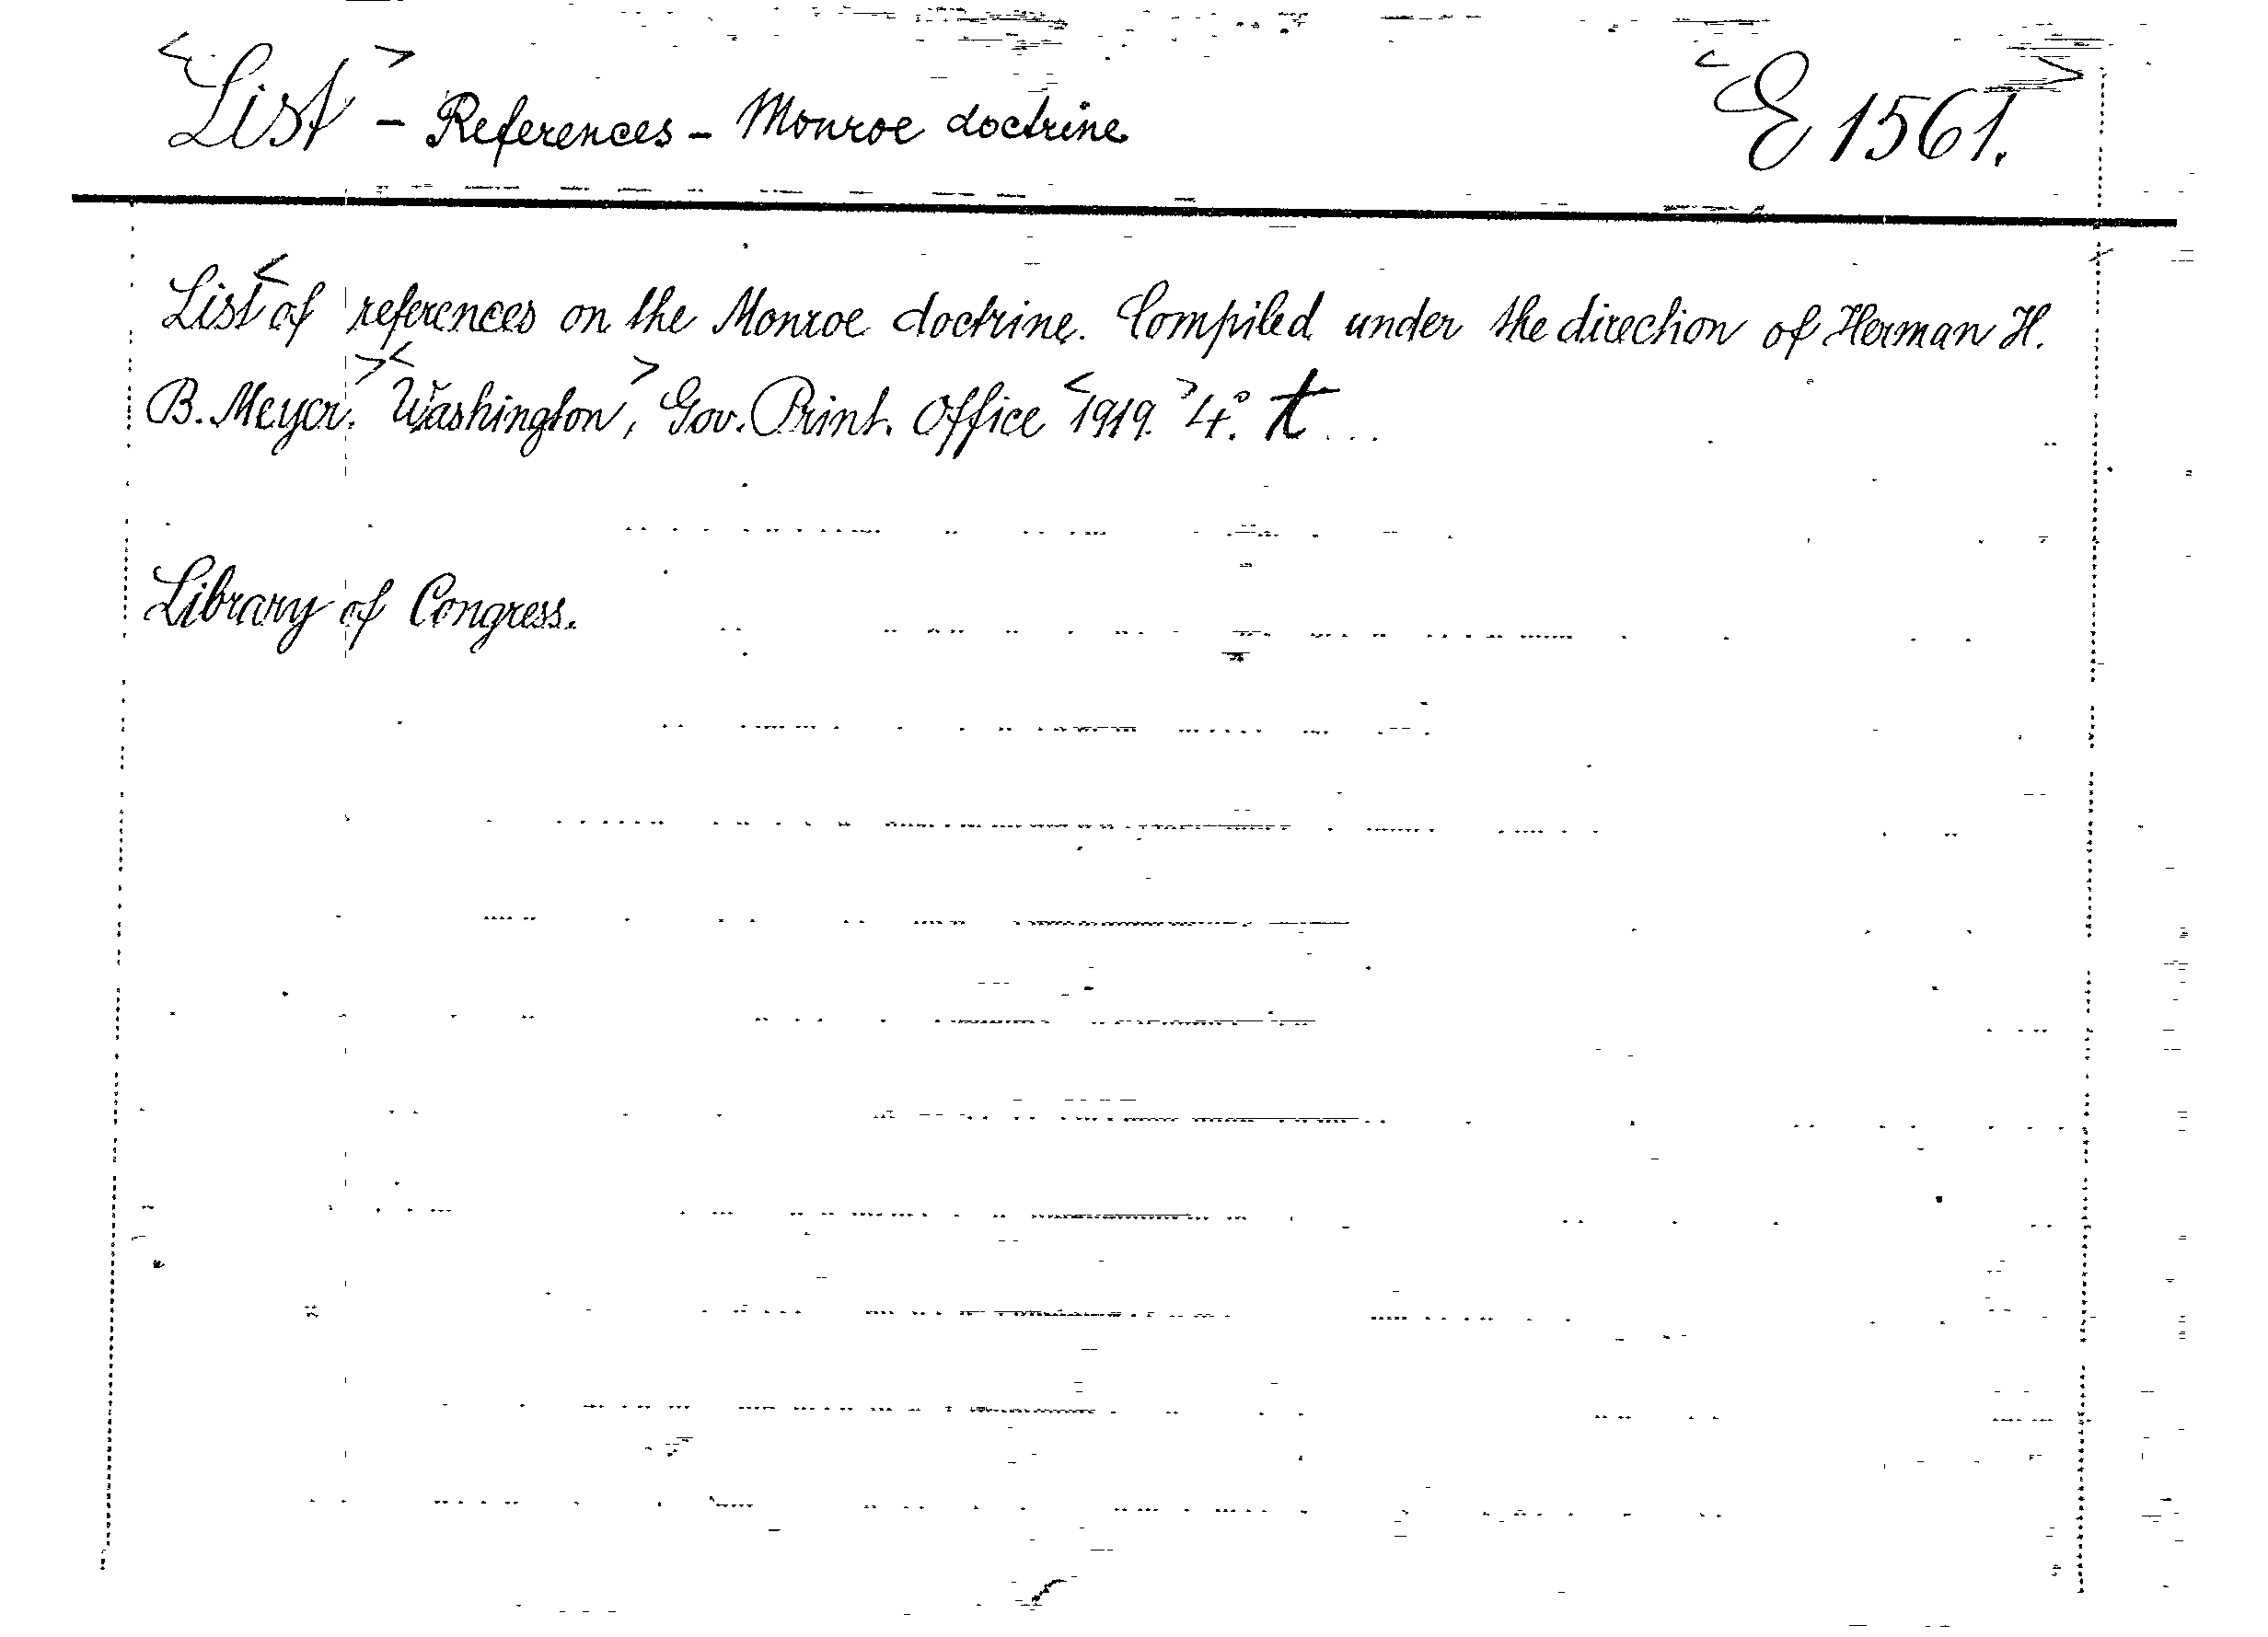 <List> - References - Monroe doctrine <E 1561.>
List <of references on the Monroe doctrine. Compiled under the direction of Herman H.
B. Meyer.> <Washington>, Gov. Print. Office <1919.> 4°. t...
Library of Congress.